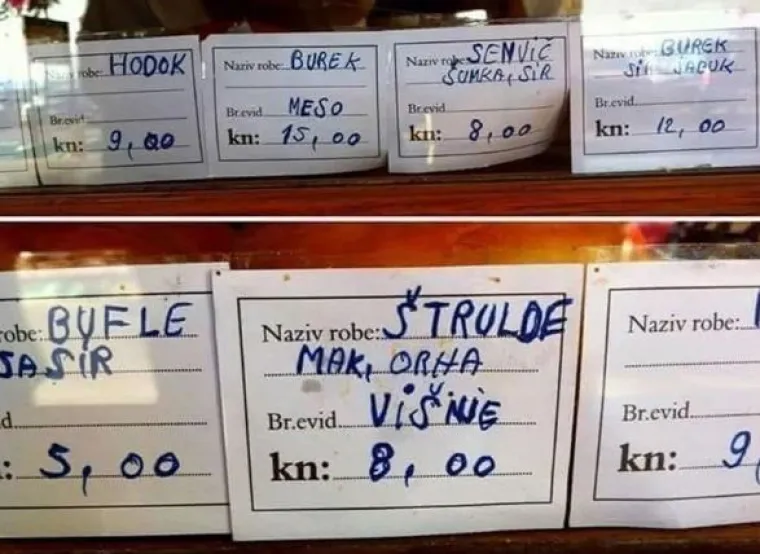 Naziv robe: HODOK
Br.evid
kn: 9,00
Naziv robe: BUREK
Br.evid MESO
kn: 15,00
Naziv robe: SENVIČ
ŠUMKA, SIR
Br.evid
kn: 8,00
Naziv robe: BUREK
SIR JABUK
Br.evid
kn: 12,00
robe: BUFLE
SA SIR
d.
: 5,00
Naziv robe: ŠTRULDE
MAK, ORHA
Br.evid VIŠNJE
kn: 8,00
Naziv robe:
Br.evid
kn: 9,